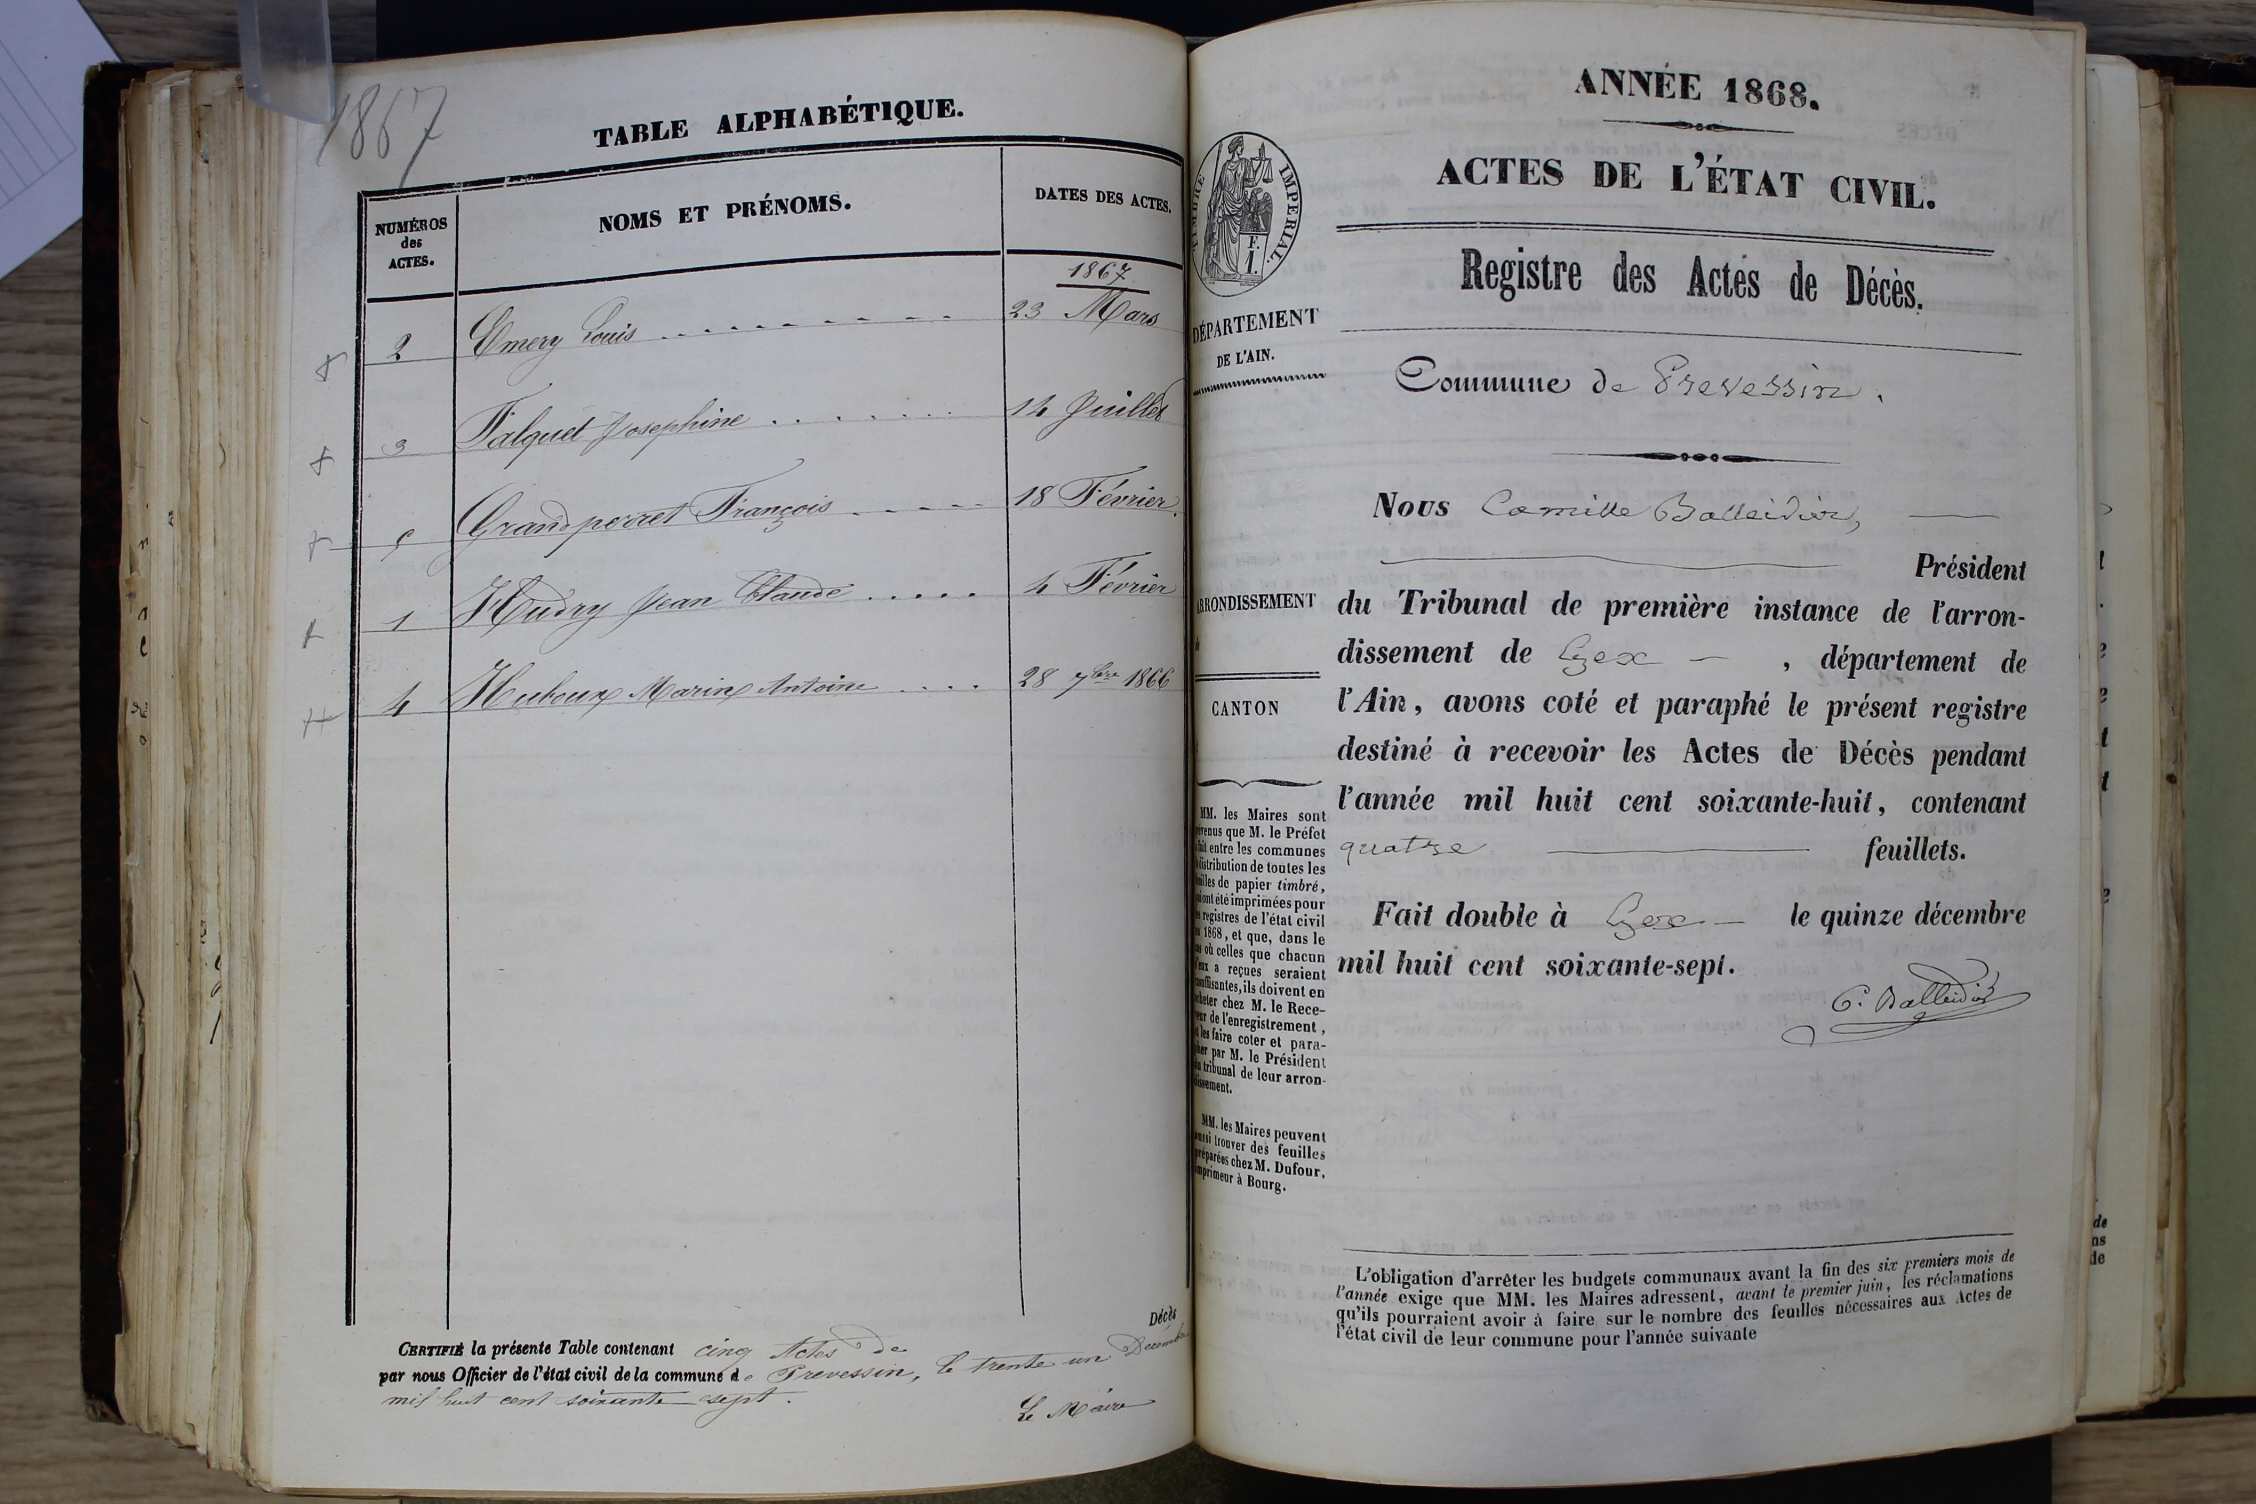 1867
TABLE ALPHABÉTIQUE.
NUMÉROS
des
ACTES.
NOMS ET PRÉNOMS.
DATES DES ACTES.
1867
2 Emery Louis 23 Mars
3 Falquet Josephine 14 Juillet
5 Grandperret François 18 Février
1 Hudry Jean Claude 4 Février
4 Huboux Marin Antoine 28 7bre 1866
Décès
CERTIFIÉ la présente Table contenant cinq Actes de
par nous Officier de l'état civil de la commune de Prevessin, le trente un Decembre
mil huit cent soixante sept.
Le Maire
ANNÉE 1868.
ACTES DE L'ÉTAT CIVIL.
Registre des Actes de Décès.
TIMBRE IMPERIAL.
F.
1.
DÉPARTEMENT
DE L'AIN.
ARRONDISSEMENT
CANTON
MM. les Maires sont
prévenus que M. le Préfet
fait entre les communes
distribution de toutes les
feuilles de papier timbré,
qui ont été imprimées pour
les registres de l'état civil
1868, et que, dans le
cas où celles que chacun
d'eux a reçues seraient
insuffisantes, ils doivent en
acheter chez M. le Rece-
veur de l'enregistrement,
et les faire coter et para-
pher par M. le Président
du tribunal de leur arron-
dissement.
MM. les Maires peuvent
aussi trouver des feuilles
préparées chez M. Dufour,
imprimeur à Bourg.
Commune de Prevessin.
Nous Camille Balleidier,
Président
du Tribunal de première instance de l'arron-
dissement de Gex, département de
l'Ain, avons coté et paraphé le présent registre
destiné à recevoir les Actes de Décès pendant
l'année mil huit cent soixante-huit, contenant
quatre feuillets.
Fait double à Gex le quinze décembre
mil huit cent soixante-sept.
C. Balleidier
L'obligation d'arrêter les budgets communaux avant la fin des six premiers mois de
l'année exige que MM. les Maires adressent, avant le premier juin, les réclamations
qu'ils pourraient avoir à faire sur le nombre des feuilles nécessaires aux Actes de
l'état civil de leur commune pour l'année suivante